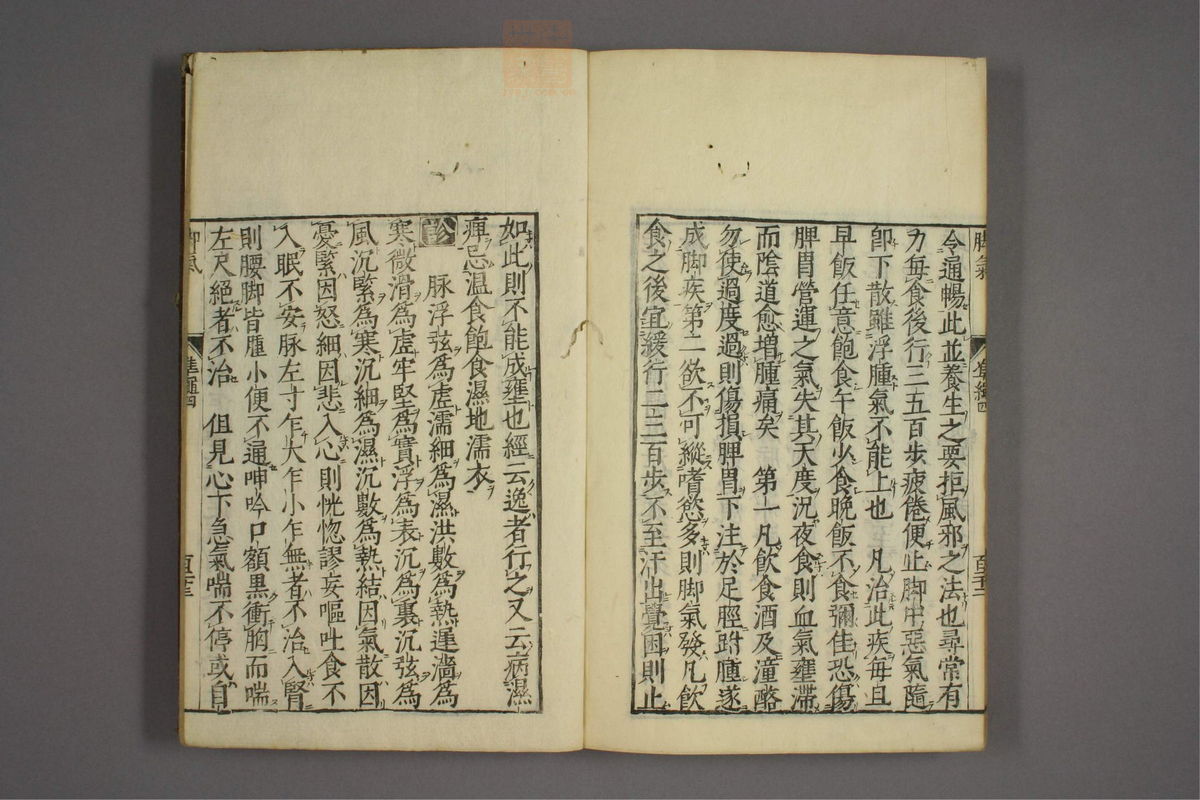 脚氣
令通暢此並養生之要拒風邪之法也尋常有
力每食後行三五百步疲倦便止脚中惡氣隨
卽下散雖浮腫氣不能上也　凡治此疾每旦
早飯任意飽食午飯少食晚飯不食彌佳恐傷
脾胃營運之氣失其天度況夜食則血氣壅滯
而陰道愈增腫痛矣　第一凡飮食酒及潼酪
勿使過度過則傷損脾胃下注於足脛跗腫遂
成脚疾第二欲不可縱嗜慾多則脚氣發凡飮
食之後宜緩行二三百步不至汗出覺困則止
如此則不能成壅也經云逸者行之又云病濕
痺忌温食飽食濕地濡衣
診　脉浮弦爲虚濡細爲濕洪數爲熱遲濇爲
寒微滑爲虚牢堅爲實浮爲表沉爲裏沉弦爲
風沉緊爲寒沉細爲濕沉數爲熱結因氣散因
憂緊因怒細因悲入心則恍惚謬妄嘔吐食不
入眠不安脉左寸乍大乍小乍無者不治入腎
則腰脚皆腫小便不通呻吟口額黒衝胸而喘
左尺絕者不治　但見心下急氣喘不停或自